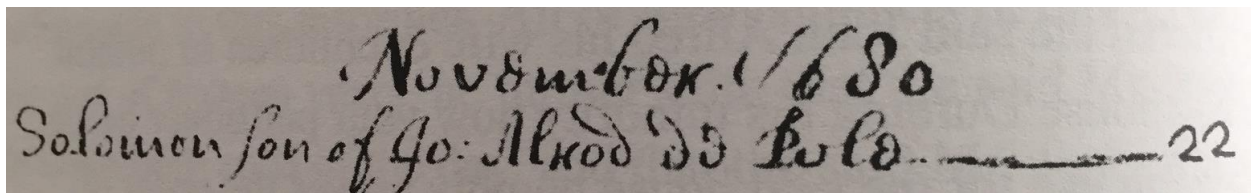 November. 1680
Solomon son of Jo: Alred de Pule 22